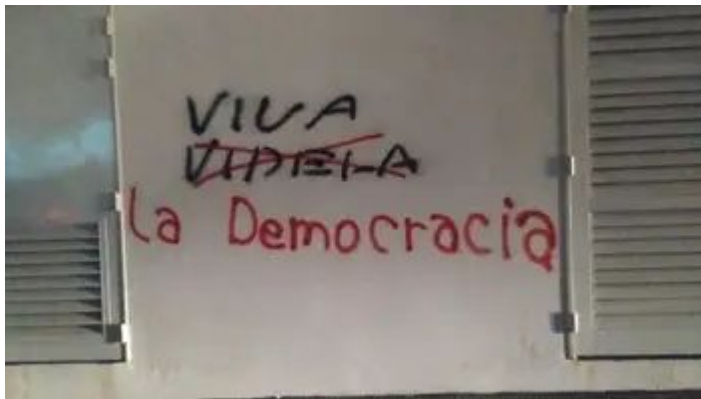 VIVA
VIDELA
la Democracia